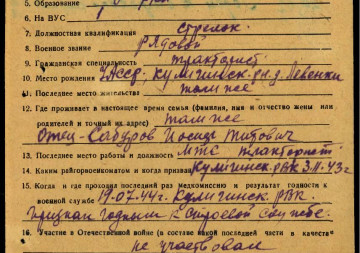 5. Образование
6. На ВУС
7. Должностная квалификация стрелок
8. Военное звание рядовой
9. Гражданская специальность тракторист
10. Место рождения УАССР, Кулигинск. р-н, д. Левенки
11. Последнее место жительства там же
12. Где проживает в настоящее время семья (фамилия, имя и отчество жены или
родителей и точный их адрес) там же
Отец - Титович
13. Последнее место работы и должность МТС тракторист
14. Каким райгорвоенкоматом и когда призван Кулигинск. РВК 3.II-43 г
15. Когда и где проходил последний раз медкомиссию и результат годности к
военной службе 19.07.44 г. Кулигинск. РВК.
признан годным к строевой службе.
16. Участие в Отечественной войне (в составе какой последней части в качеств
не участвовал